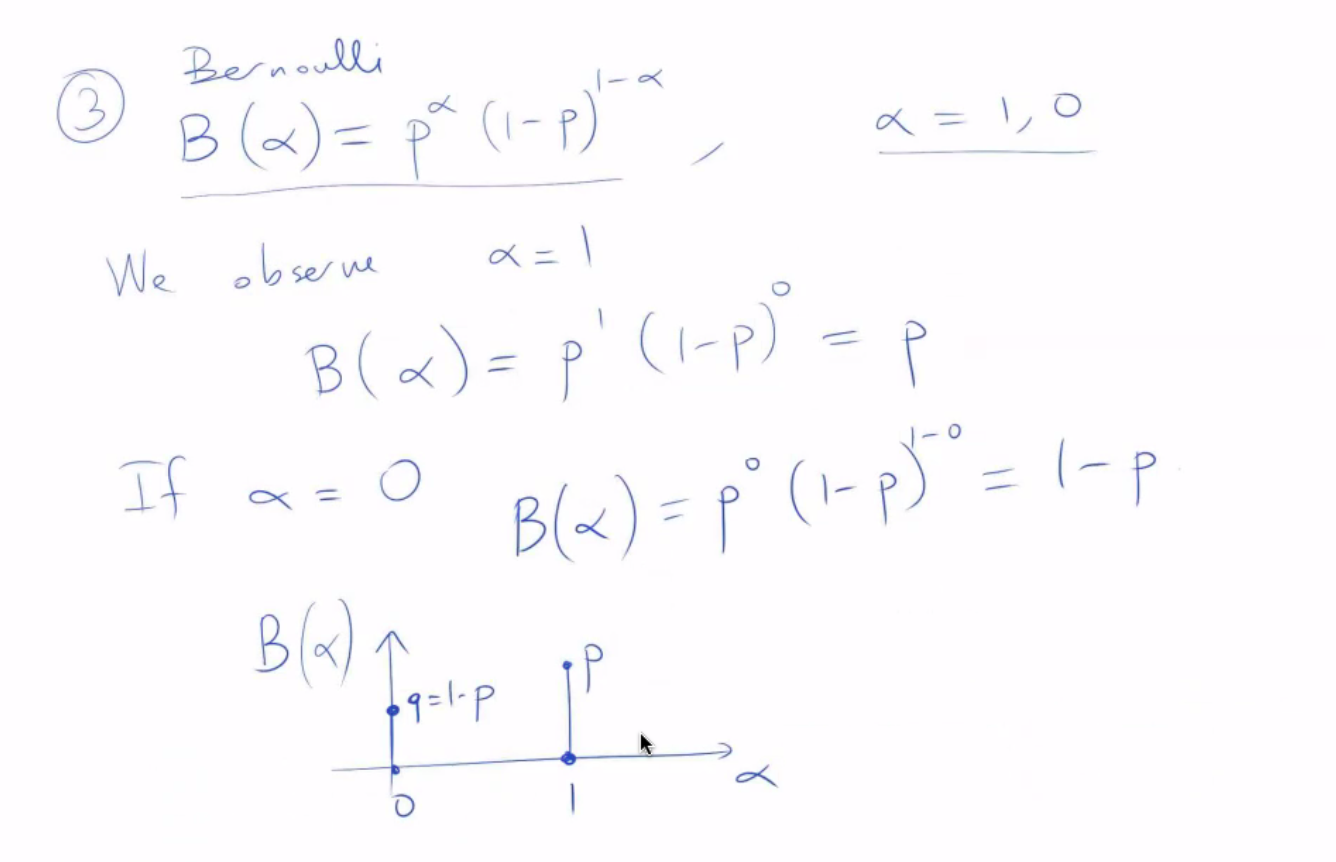 ③ Bernoulli
B(α) = p^α (1-p)^{1-α} , α = 1, 0
We observe α = 1
B(α) = p^1 (1-p)^0 = p
If α = 0 B(α) = p^0 (1-p)^{1-0} = 1-p
B(α)
p
q=1-p
α
0 1